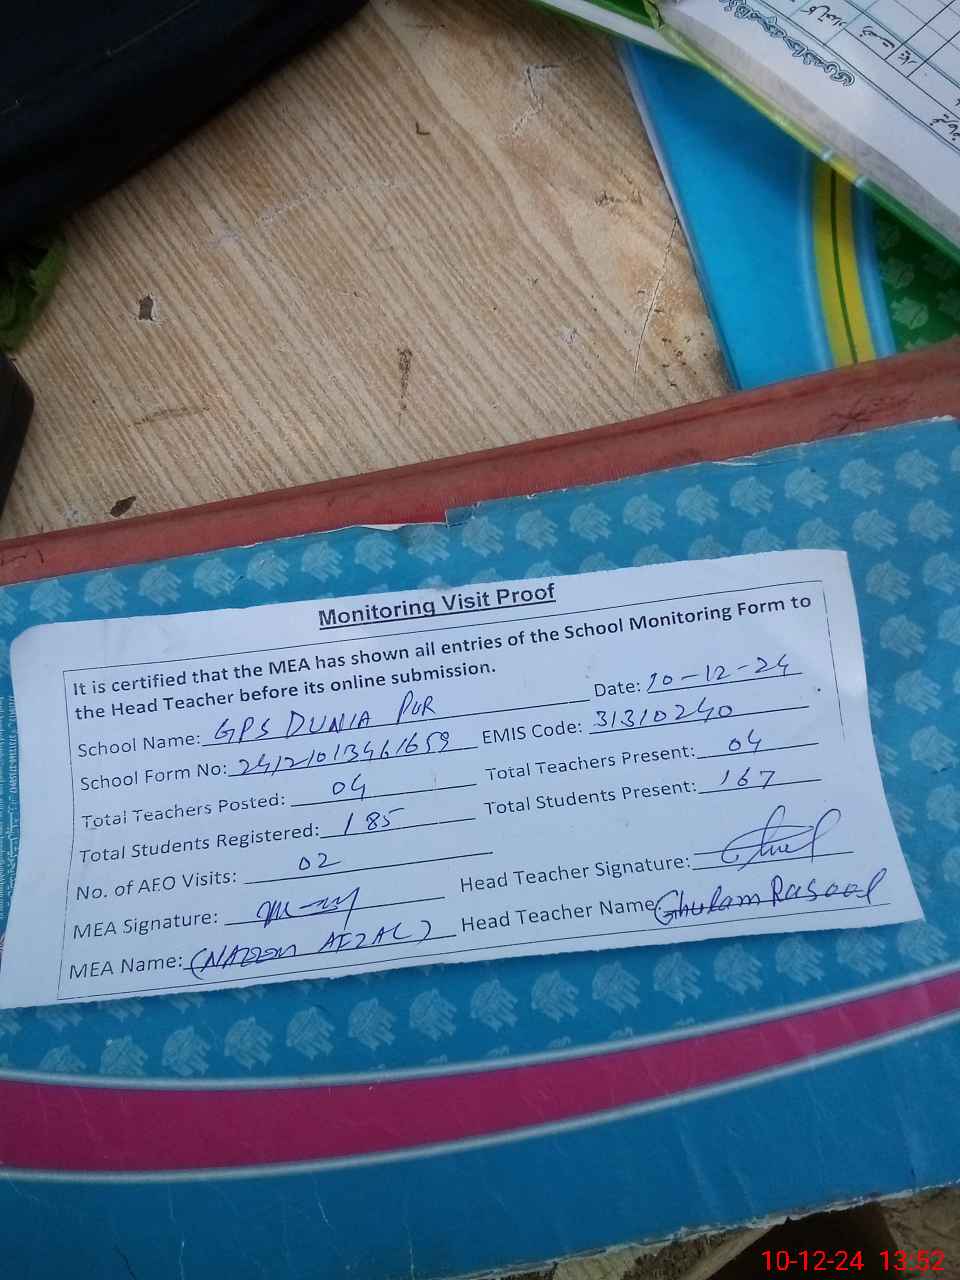 Monitoring Visit Proof
It is certified that the MEA has shown all entries of the School Monitoring Form to
the Head Teacher before its online submission.
School Name: GPS DUNIA PUR Date: 10-12-24
School Form No: 24121013461659 EMIS Code: 31310240
Total Teachers Posted: 04 Total Teachers Present: 04
Total Students Registered: 185 Total Students Present: 167
No. of AEO Visits: 02
MEA Signature: Head Teacher Signature:
MEA Name: (NAEEM AFZAL) Head Teacher Name Ghulam Rasool
10-12-24 13:52